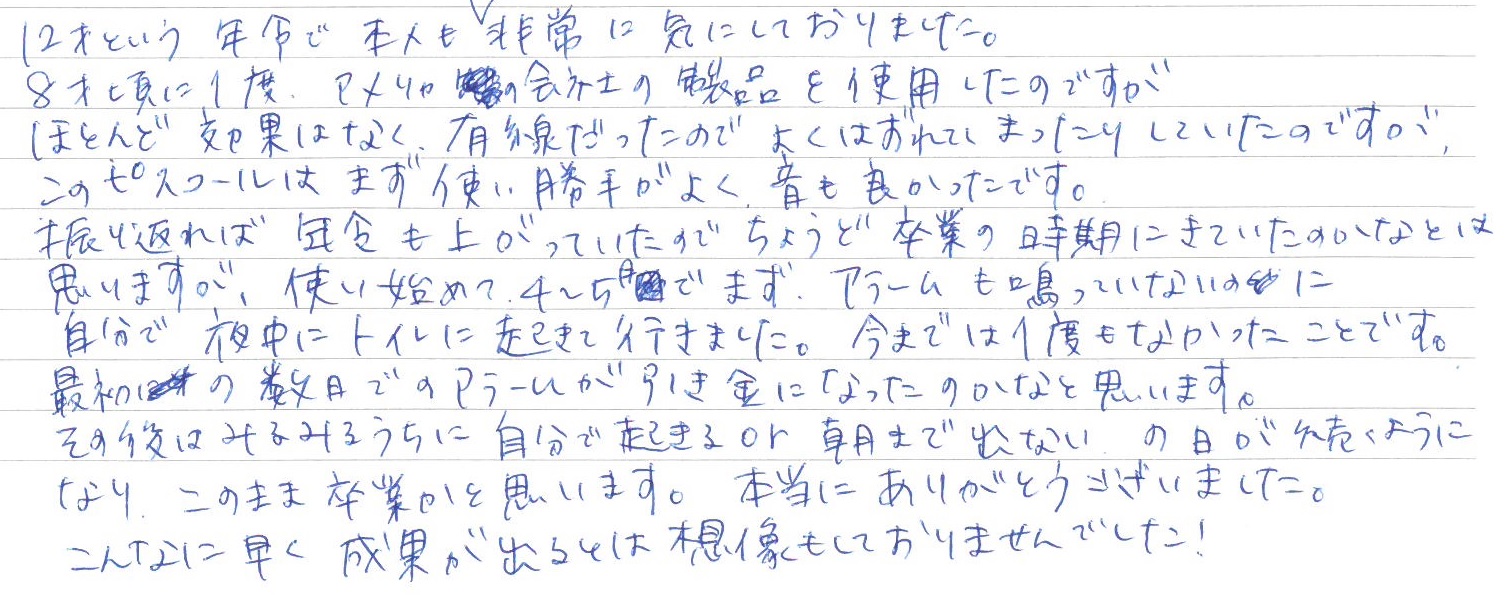 12才という年令で本人も非常に気にしておりました。
8才頃に1度、アメリカの会社の製品を使用したのですが
ほとんど効果はなく、有線だったのでよくはずれてしまったりしていたのですが、
このピスコールはまず使い勝手がよく、音も良かったです。
振り返れば年令も上がっていたのでちょうど卒業の時期にきていたのかなとは
思いますが、使い始めて、4～5日でまず、アラームも鳴っていないのに
自分で夜中にトイレに起きて行きました。今までは1度もなかったことです。
最初の数日でのアラームが引き金になったのかなと思います。
その後はみるみるうちに自分で起きるor朝まで出ないの日が続くように
なり、このまま卒業かと思います。本当にありがとうございました。
こんなに早く成果が出るとは想像もしておりませんでした！